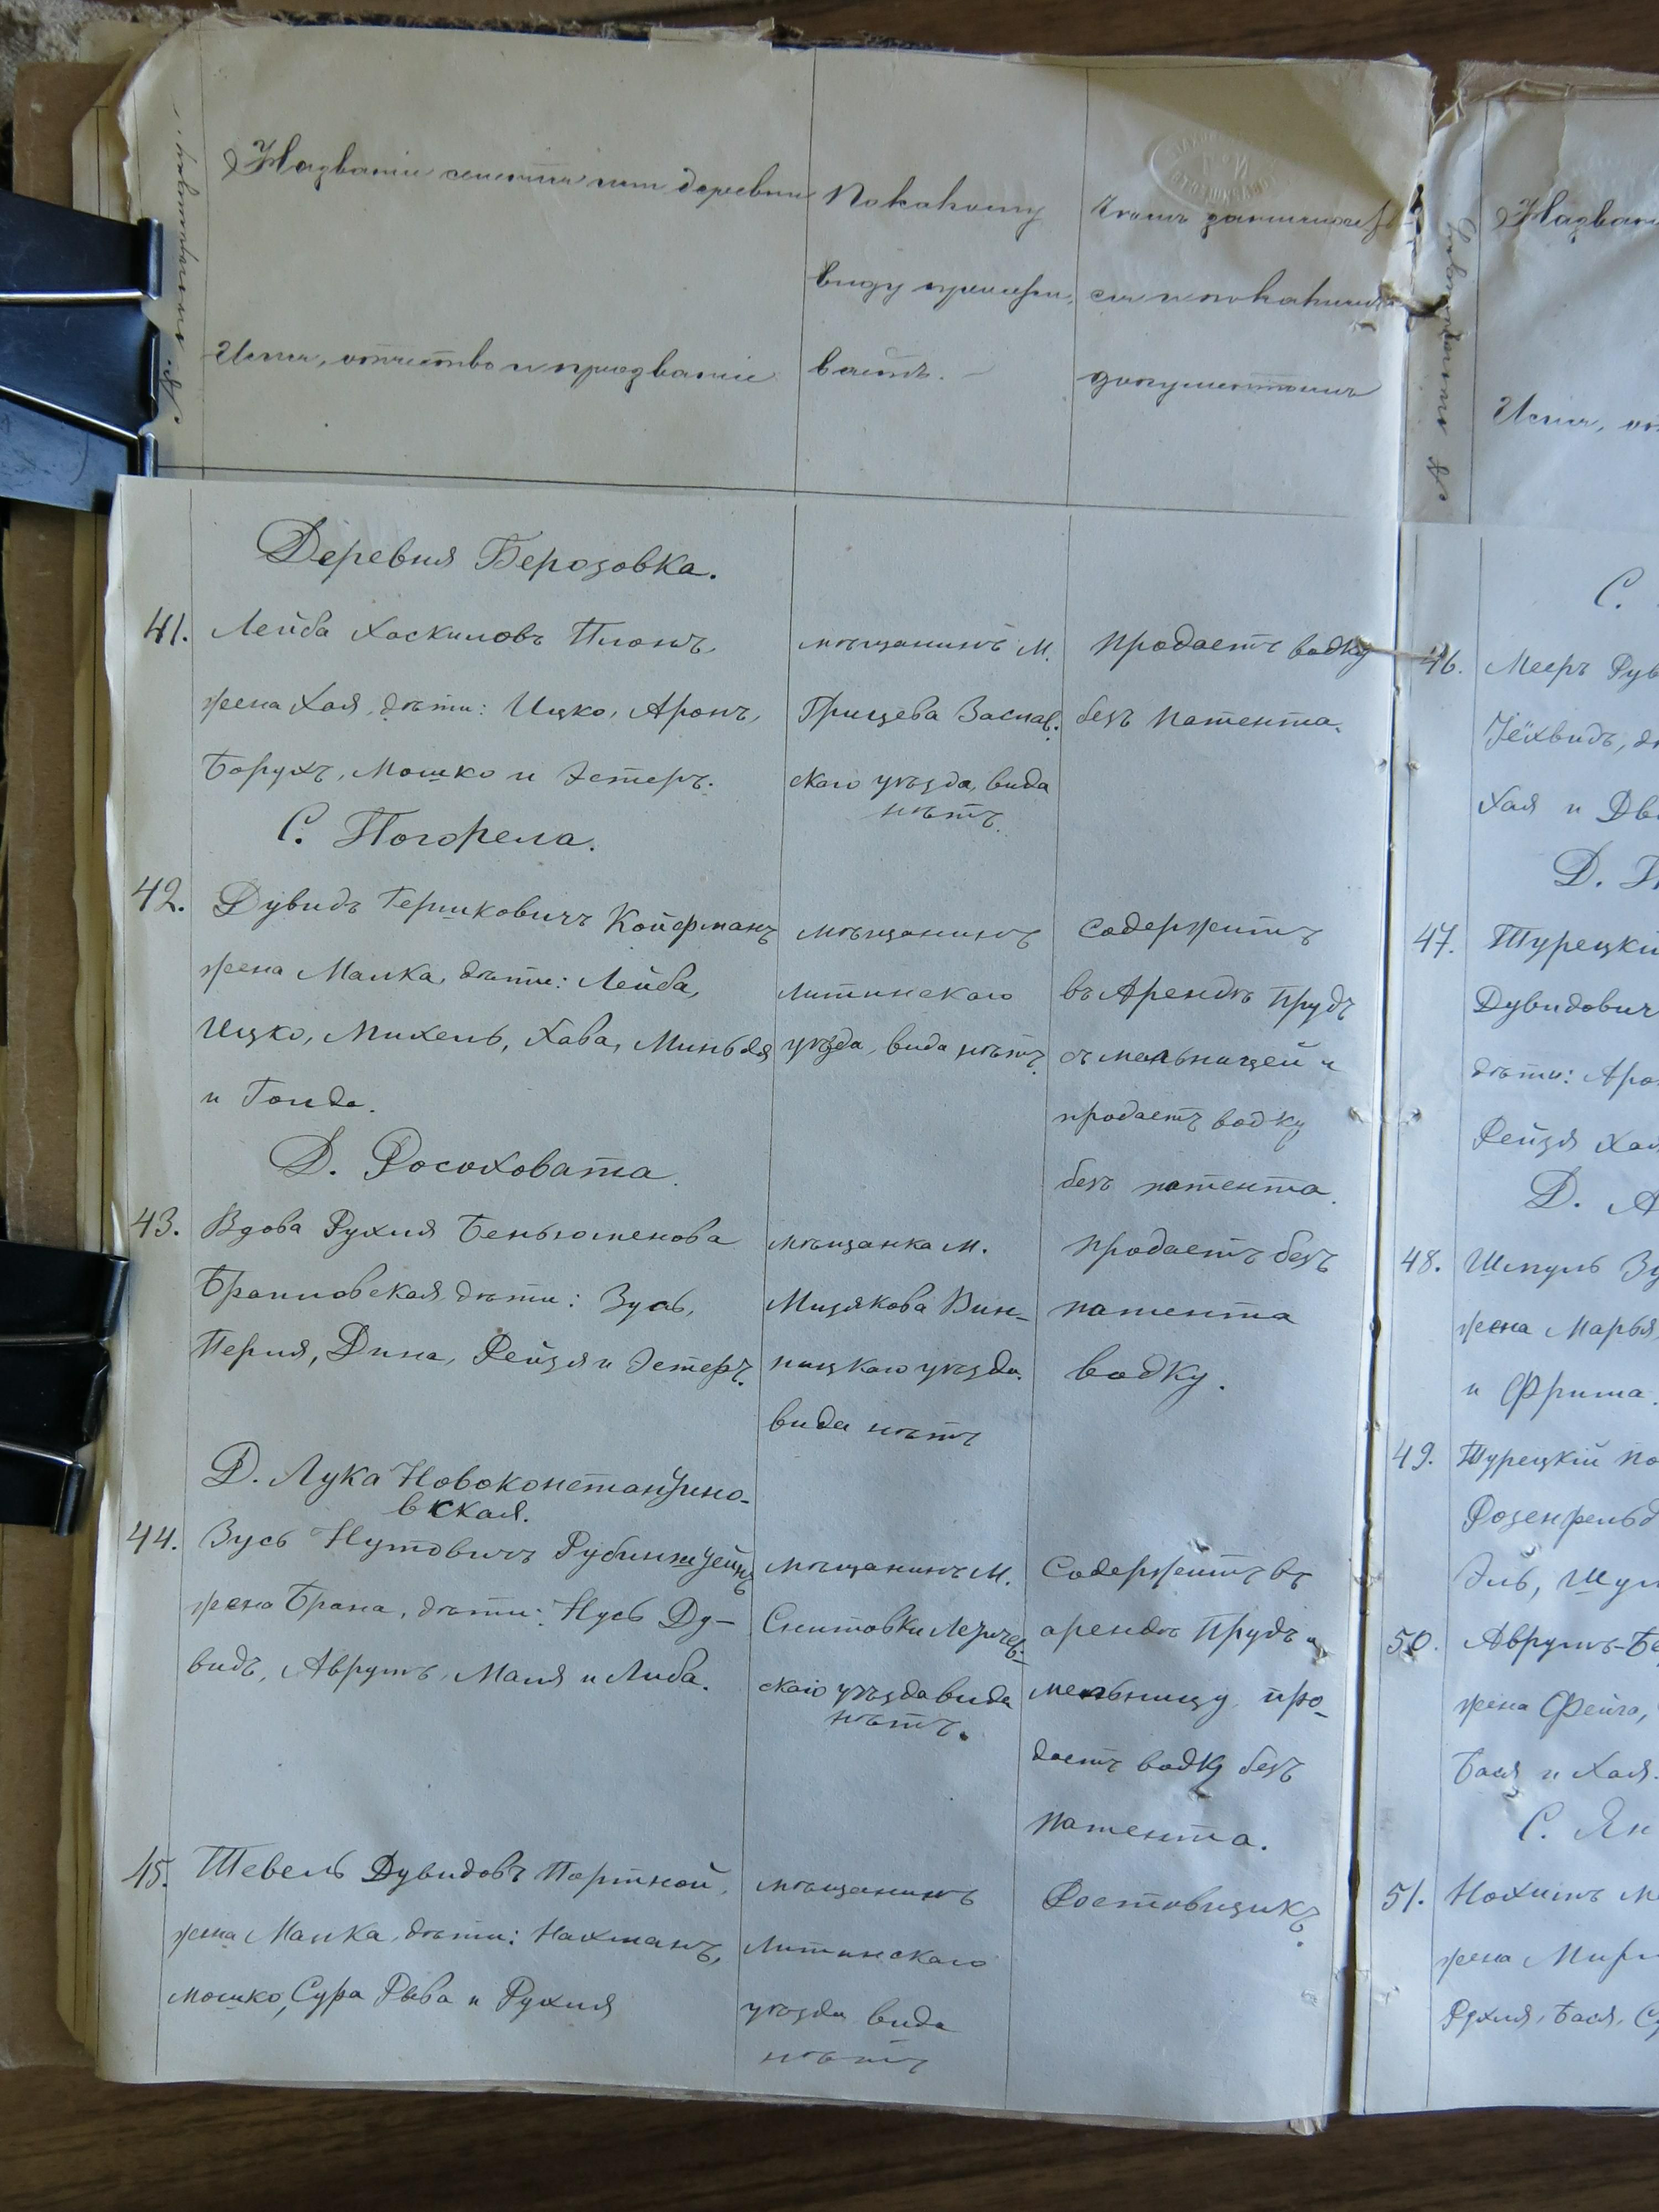 Названіе селенія или деревни
Имя, отчество и прозваніе
По какому
виду прожи-
ваетъ.
Чѣмъ занимает-
ся и по какимъ
документамъ
Деревня Берозовка.
41. Лейба Хаскиловъ Плонъ,
жена Хая, дѣти: Ицко, Аронъ,
Борухъ, Мошко и Эстеръ.
мѣщанинъ М.
Грицева Заслав-
скаго уѣзда, вида
нѣтъ.
продаетъ водку
безъ патента.
С. Погорела.
42. Дувидъ Гершковичъ Койфманъ
жена Малка, дѣти: Лейба,
Ицко, Михель, Хава, Миньдя
и Голда.
мѣщанинъ
Литинскаго
уѣзда, вида нѣтъ.
Содержитъ
въ Арендѣ прудъ
съ мельницей и
продаетъ водку
безъ патента.
Д. Росоховата.
43. Вдова Рухля Беньюменова
Браиловская, дѣти: Зусь,
Перля, Дина, Рейзя и Эстеръ.
мѣщанка М.
Мизякова Вин-
ницкаго уѣзда.
вида нѣтъ
продаетъ безъ
патента
водку.
Д. Лука Новоконстантино-
вская.
44. Зусь Нутовичъ Рубинштейнъ
жена Брана, дѣти: Нусь Ду-
видъ, Аврумъ, Маля и Либа.
мѣщанинъ М.
Снитовки Летичев-
скаго уѣзда вида
нѣтъ.
Содержитъ въ
арендѣ прудъ и
мельницу, про-
даетъ водку безъ
патента.
45. Тевель Дувидовъ Портной,
жена Малка, дѣти: Нахманъ,
мошко, Сура Рыва и Рухля
мѣщанинъ
Литинскаго
уѣзда вида
нѣтъ
Ростовщикъ.
Имя,
С.
46. Мееръ
Хая и
Д.
47. Турецкій
Дувидович
дѣти:
Рейзя
Д.
48. Шмуль
жена Марья,
и Фрима.
49. Турецкій
Розенфельд
50. Аврумъ-
жена Фейга,
Бася и Хая.
С.
51. Нохимъ
жена
Рухля, Бася,